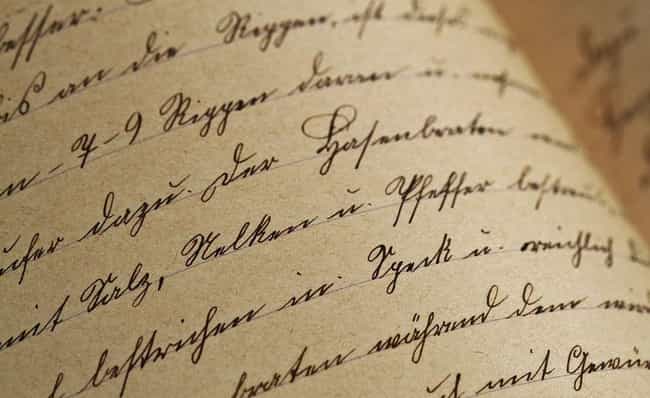 besser.
bis an die Rippen, ist dieser
n - 7 - 9 Rippen daran u.
ufer dazu. Der Hasenbraten
mit Salz, Nelken u. Pfeffer bestreu
bestrichen in Speck u. reichlich
braten während dem wird
mit Gewür